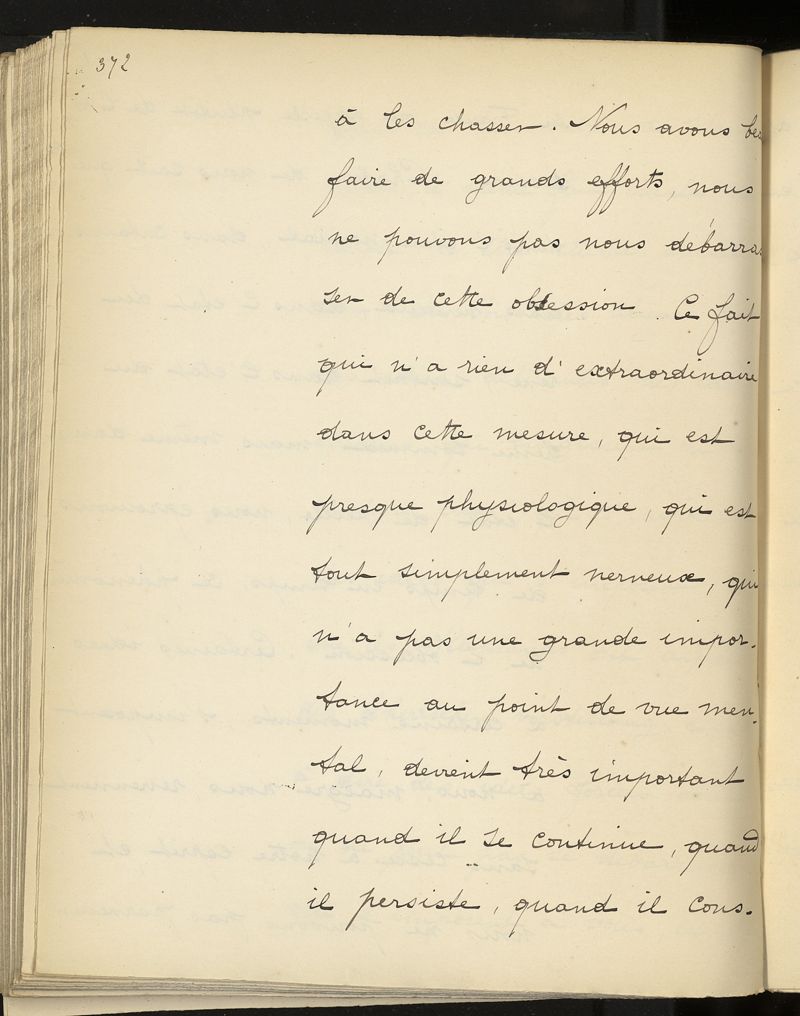 372
à les chasser. Nous avons be
faire de grands efforts, nous
ne pouvons pas nous débarras
ser de cette obsession. Ce fait
qui n'a rien d'extraordinaire
dans cette mesure, qui est
presque physiologique, qui est
tout simplement nerveux, qui
n'a pas une grande impor-
tance au point de vue men-
tal, devient très important
quand il se continue, quand
il persiste, quand il cons-